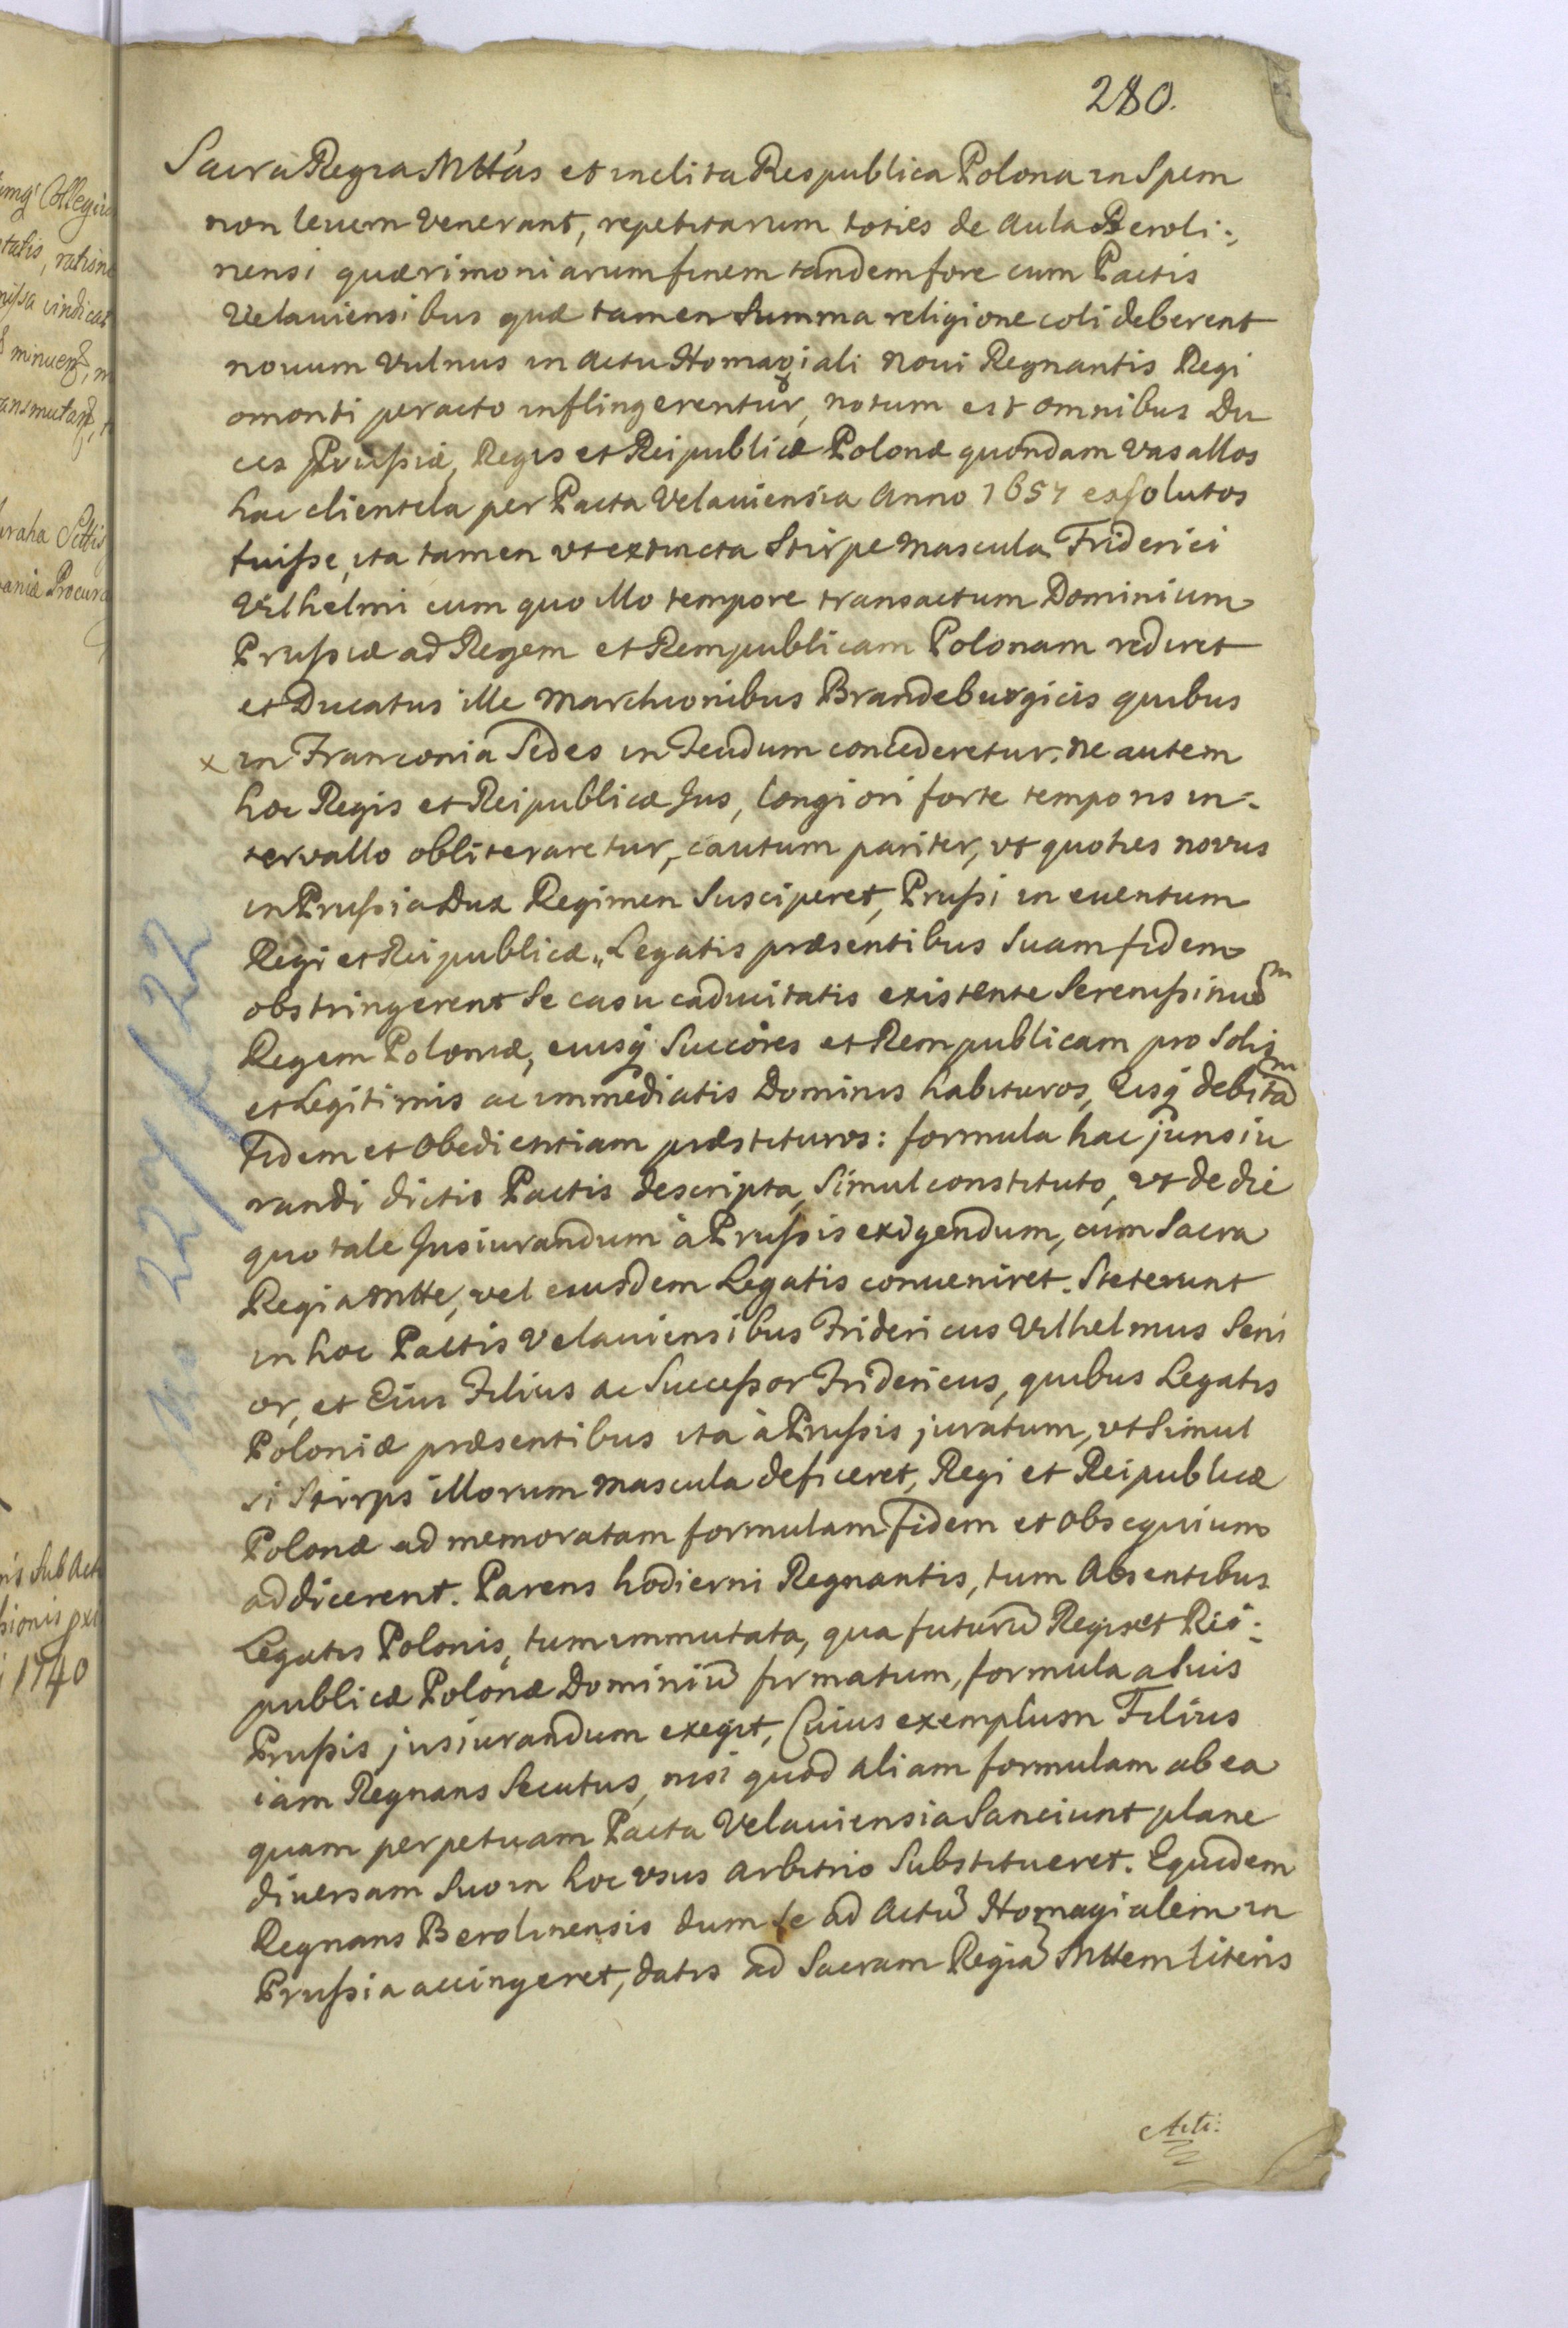 280.
Sacra Regia Mttas et inclita Respublica Polona in Spem
non leuem venerant, repetitarum toties de Aula Beroli:,
nensi quærimoniarum finem tandem fore cum Pactis
Velauiensibus quæ tamen summa religione coli deberent
nouum vulnus in actu Homagiali noui Regnantis Regi
omonti peracto inflingerentur, notum est omnibus Du
ces Prussiæ, Regis et Reipublicæ Polonæ quondam Vasallos
hac clientela per Pacta Velauiensia Anno 1657 exsolutos
fuisse, ita tamen vt extincta Stirpe mascula Friderici
Vilhelmi cum quo illo tempore transactum Dominium
Prussiæ ad Regem et Rempublicam Polonam rediret
et Ducatus ille Marchionibus Brandeburgicis quibus
x in Franconia Sedes in feudum concederetur. ne autem
hoc Regis et Reipublicæ Jus, longiori forte temporis in-
tervallo obliteraretur, cautum pariter, vt quoties novus
in Prussia Dux Regimen susciperet, Prussi in euentum
Regi et Reipublicæ,, Legatis præsentibus suam fidem
obstringerent se casu caducitatis existente Serenissimum
Regem Poloniæ, eiusq. Succores et Rempublicam pro solis
et Legitimis ac immediatis Dominis habituros, Eisq debitam
fidem et obedientiam præstituros: formula hac jurisiu
randi dictis Pactis descripta, simul constituto, vt de die
quo tale Jusiurandum à Prussis exigendum, cum Sacra
Regia Mtte, vel eiusdem Legatis conueniret. Steterunt
in hoc Pactis Velauiensibus Fridericus Vilhelmus Seni
or, et Eius Filius ac Successor Fridericus, quibus Legatis
Poloniæ præsentibus ita à Prussis juratum, vt simul
si Stirps illorum mascula deficeret, Regi et Reipublicæ
Polonæ ad memoratam formulam fidem et obsequium
addicerent. Parens hodierni Regnantis, tum Absentibus
Legatis Polonis, tum immutata, qua futurũ Regis et Rei:
publicæ Polonæ Dominiũ firmatum, formula a suis
Prussis jusiurandum exegit, Cuius exemplum Filius
iam Regnans secutus, nisi quod aliam formulam ab ea
quam perpetuam Pacta Velauiensia sanciunt plane
diuersam suo in hoc vsus arbitrio substitueret. Equidem
Regnans Berolinensis dum se ad Actũ Homagialem in
Prussia accingeret, datis ad Sacram Regiã Mttem literis